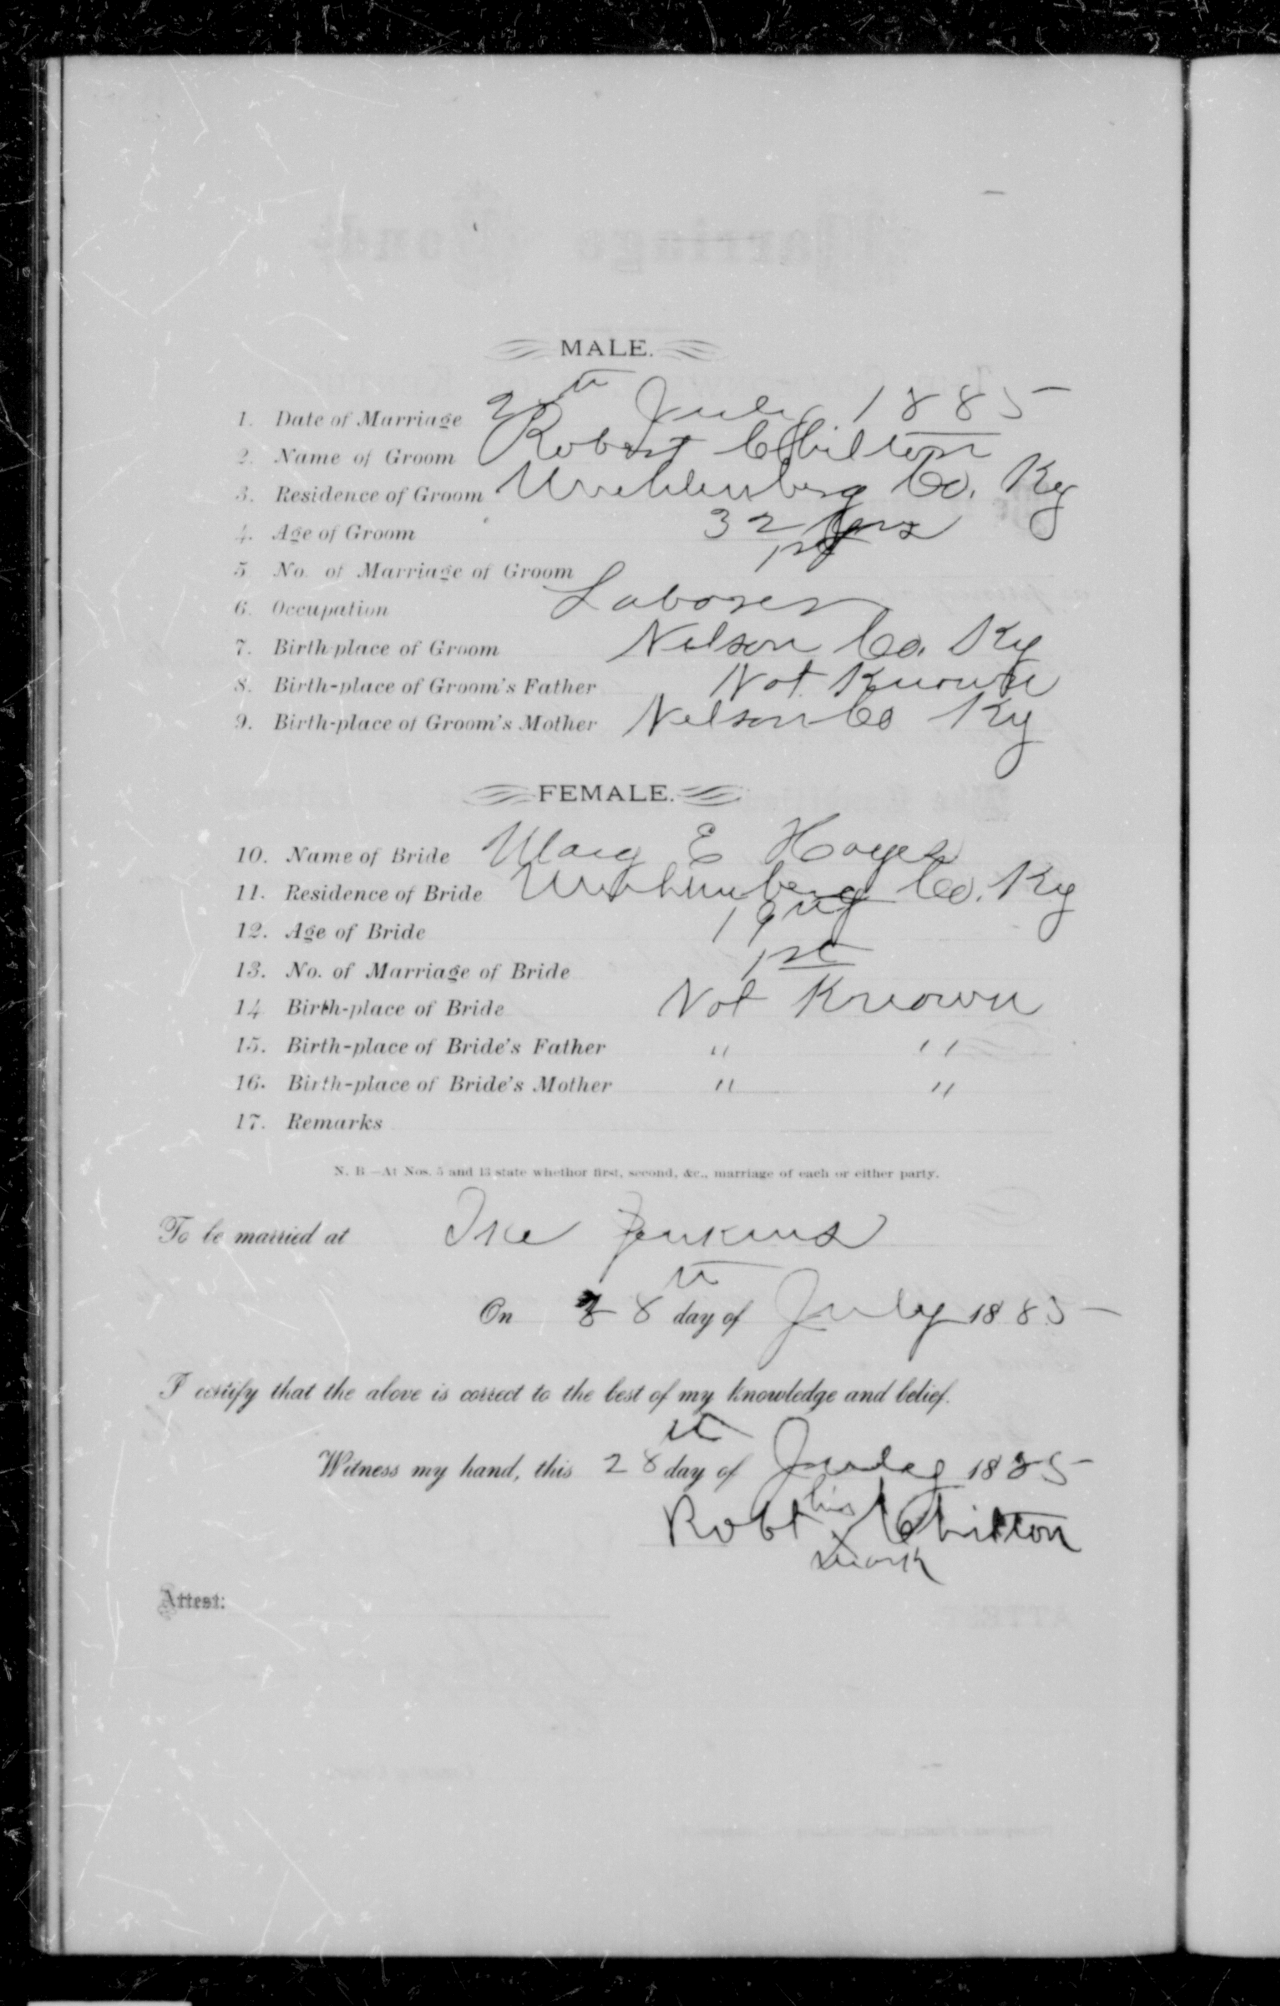 MALE.
1. Date of Marriage 28th July 1885
2. Name of Groom Robert Chilton
3. Residence of Groom Muhlenberg Co. Ky
4. Age of Groom 32 yrs
5 No. of Marriage of Groom 1st
6. Occupation Laborer
7. Birth-place of Groom Nelson Co. Ky
8. Birth-place of Groom's Father Not Known
9. Birth-place of Groom's Mother Nelson Co Ky
FEMALE.
10. Name of Bride Mary E Hayes
11. Residence of Bride Muhlenberg Co. Ky
12. Age of Bride 19
13. No. of Marriage of Bride 1st
14 Birth-place of Bride Not Known
15. Birth-place of Bride's Father " "
16. Birth-place of Bride's Mother " "
17. Remarks
N. B.—At Nos. 5 and 13 state whether first, second, &c., marriage of each or either party.
To be married at Ike Jenkins
On 28th day of July 1885
I certify that the above is correct to the best of my knowledge and belief.
Witness my hand, this 28th day of July 1885
Robt his x mark Chilton
Attest: